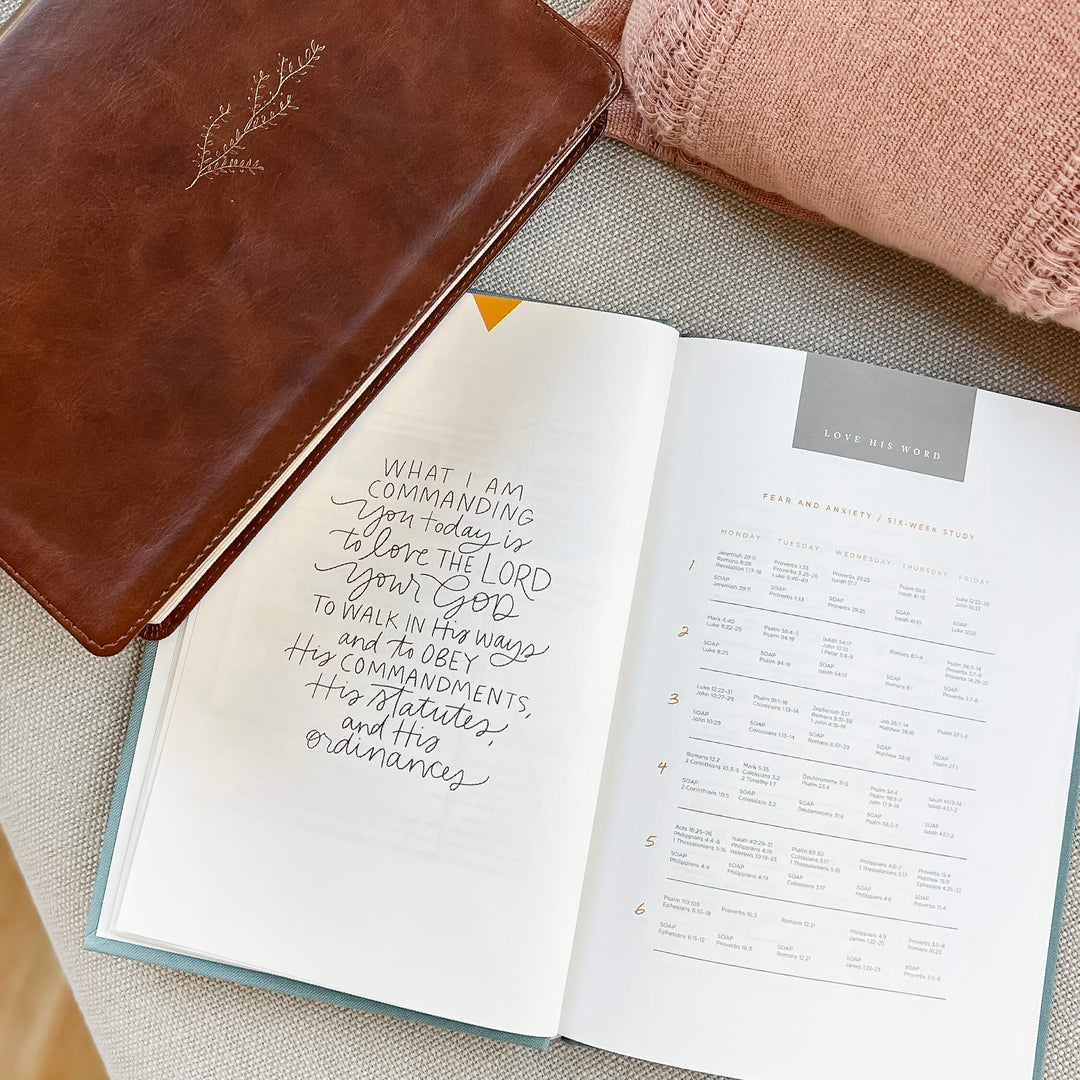 WHAT I AM
COMMANDING
you today is
to love THE LORD
your God
TO WALK IN His ways
and to OBEY
His COMMANDMENTS,
His statutes,
and His
ordinances
LOVE HIS WORD
FEAR AND ANXIETY / SIX-WEEK STUDY
MONDAY TUESDAY WEDNESDAY THURSDAY FRIDAY
1
Jeremiah 29:11
Romans 8:28
Revelation 1:17-18
SOAP
Jeremiah 29:11
Proverbs 1:33
Proverbs 3:25-26
Luke 6:46-49
SOAP
Proverbs 1:33
Proverbs 29:25
Isaiah 51:7
SOAP
Proverbs 29:25
Psalm 56:5
Isaiah 41:10
SOAP
Isaiah 41:10
Luke 12:22-26
John 16:33
SOAP
Luke 12:22
2
Mark 4:40
Luke 8:22-25
SOAP
Luke 8:25
Psalm 55:4-5
Psalm 94:19
SOAP
Psalm 94:19
Isaiah 54:17
John 10:10
1 Peter 5:8-9
SOAP
Isaiah 54:17
Romans 8:1-4
SOAP
Romans 8:1
Psalm 34:11-14
Proverbs 3:7-8
Proverbs 14:26-27
SOAP
Proverbs 3:7-8
3
Luke 12:22-31
John 10:27-29
SOAP
John 10:29
Psalm 91:1-16
Colossians 1:13-14
SOAP
Colossians 1:13-14
Zephaniah 3:17
Romans 8:31-39
1 John 4:18-19
SOAP
Romans 8:37-39
Job 26:7-14
Matthew 28:18
SOAP
Matthew 28:18
Psalm 27:1-3
SOAP
Psalm 27:1
4
Romans 12:2
2 Corinthians 10:3-5
SOAP
2 Corinthians 10:5
Mark 5:35
Colossians 3:2
2 Timothy 1:7
SOAP
Colossians 3:2
Deuteronomy 31:6
Psalm 23:4
SOAP
Deuteronomy 31:6
Psalm 34:4
Psalm 118:5-7
John 17:9-19
SOAP
Psalm 118:5-7
Isaiah 41:13-14
Isaiah 43:1-2
SOAP
Isaiah 43:1-2
5
Acts 16:25-26
Philippians 4:4-8
1 Thessalonians 5:16
SOAP
Philippians 4:4
Isaiah 40:29-31
Philippians 4:19
Hebrews 10:19-23
SOAP
Philippians 4:19
Psalm 69:30
Colossians 3:17
1 Thessalonians 5:18
SOAP
Colossians 3:17
Philippians 4:6-7
1 Thessalonians 5:17
SOAP
Philippians 4:6
Proverbs 15:4
Matthew 15:11
Ephesians 4:25-32
SOAP
Proverbs 15:4
6
Psalm 119:105
Ephesians 6:10-18
SOAP
Ephesians 6:11-12
Proverbs 16:3
SOAP
Proverbs 16:3
Romans 12:21
SOAP
Romans 12:21
Philippians 4:9
James 1:22-25
SOAP
James 1:22-23
Proverbs 3:5-8
Romans 16:20
SOAP
Proverbs 3:5-6